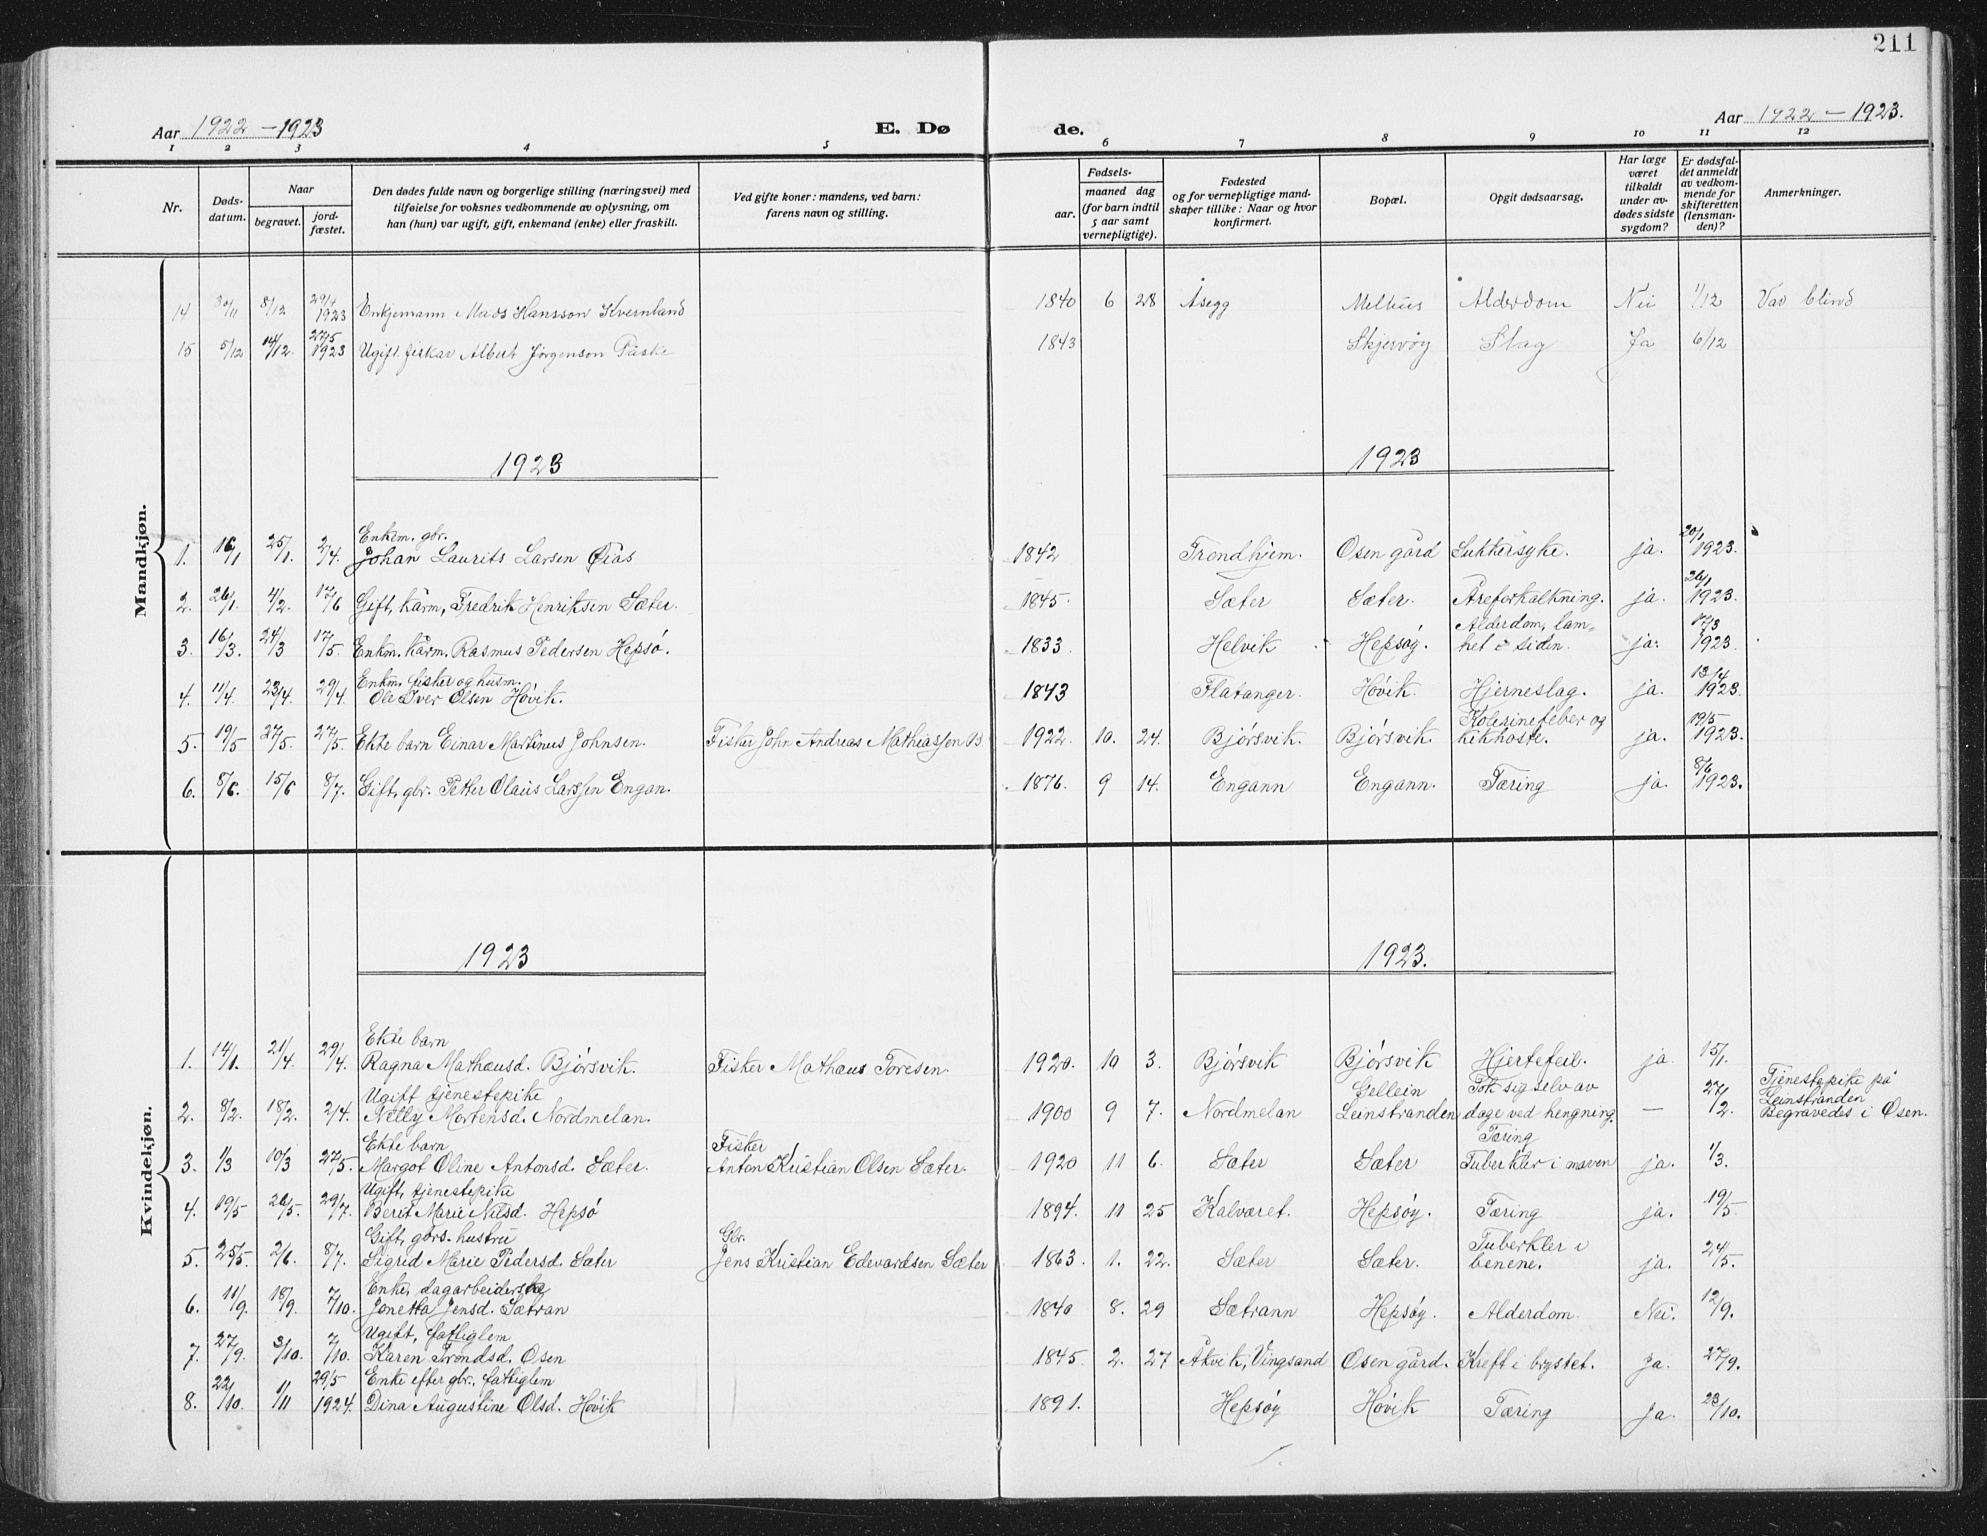 211
Aar 1922 – 1923
E. Dø
de.
Aar 1922 – 1923.
1 2 3 4 5 6 7 8 9 10 11 12
Nr.
Døds-
datum.
Naar
begravet.
jord-
fæstet.
Den dødes fulde navn og borgerlige stilling (næringsvei) med
tilføielse for voksnes vedkommende av oplysning, om
han (hun) var ugift, gift, enkemand (enke) eller fraskilt.
Ved gifte koner: mandens, ved barn:
farens navn og stilling.
Fødsels-
aar.
maaned dag
(for barn indtil
5 aar samt
vernepligtige).
Fødested
og for vernepligtige mand-
skaper tillike: Naar og hvor
konfirmert.
Bopæl.
Opgit dødsaarsag.
Har læge
været
tilkaldt
under av-
dødes sidste
sygdom?
Er dødsfal-
det anmeldt
av vedkom-
mende for
skifteretten
(lensman-
den)?
Anmerkninger.
Mandkjøn.
14 30/11 8/12 29/4 1923 Enkjemann Mads Hansson Kvernland 1840 6 28 Åsegg Melhus Alderdom Nei 1/12 Var blind
15 5/12 14/12 27/5 1923 Ugift fiskar Albert Jørgenson Påske 1843 Skjervøy Slag Ja 6/12
1923 1923
Enkm. gbr. 20/1
1. 16/1 25/1 2/4. Johan Laurits Larsen Øiås 1842 Trondhjem. Osen gård Sukkersyke. ja. 1923.
26/1
2. 26/1. 4/2. 17/6 Gift, kårm, Fredrik Henriksen Sæter. 1845. Sæter Sæter. Åreforkalkning. ja. 1923.
Alderdom, lam= 17/3
3. 16/3. 24/3 17/5. Enkm. kårm. Rasmus Pedersen Hepsø. 1833 Helvik Hepsøy. het i siden. ja. 1923.
Enkm. fisker og husm. 13/4
4. 11/4. 23/4. 29/4. Ole Iver Olsen Høvik. 1843 Flatanger. Høvik. Hjerneslag. ja. 1923.
Kolerinefeber og 19/5
5. 19/5 27/5. 27/5. Ekte barn Einar Martinus Johnsen. Fisker John Andreas Mathiassen B 1922. 10. 24. Bjørsvik. Bjørsvik. kikhoste. ja. 1923.
8/6
6. 8/6. 15/6 8/7. Gift, gbr. Petter Olaus Larssen Engan. 1876. 9 14. Engann Engann. Tæring ja. 1923.
Kvindekjøn.
1923 1923.
Ekte barn
1. 14/1. 21/4. 29/4. Ragna Mathæusd. Bjørsvik. Fisker Mathæus Toresen. 1920. 10 3. Bjørsvik Bjørsvik Hjertefeil. ja. 15/1.
Ugift tjenestepike Tok sig selv av Tjenestepike på
Leinstranden
2. 8/2. 18/2. 2/4. Nelly Mortensd. Nordmelan. 1900 9 7. Nordmelan Leinstranden dage ved hengning. — 27/2. Begravedes i Osen.
Ekte barn Fisker Tæring
3. 1/3 10/3 27/5. Margot Oline Antonsd. Sæter. Anton Kristian Olsen Sæter. 1920 11 6. Sæter Sæter Tuberkler i maven ja. 1/3.
Ugift, tjenestepike
4. 19/5 26/5. 29/7. Berit Marie Nilsd. Hepsø 1894. 11 25 Kalværet. Hepsøy. Tæring ja. 19/5.
Gift, gårs. hustru Gbr. Tuberkler i
5. 25/5. 2/6. 8/7. Sigrid Marie Pedersd. Sæter Jens Kristian Edevardsen Sæter 1863. 1. 22. Sæter Sæter. benene. ja. 24/5.
Enke, dagarbeiderske
6. 11/9. 18/9. 7/10. Jonetta Jensd. Sætran 1840 8. 29 Sætrann Hepsøy. Alderdom. Nei. 12/9.
Ugift, fattiglem
7. 27/9. 3/10. 7/10. Karen Trondsd. Osen 1845. 2. 27 Åkvik, Vingsand Osen gård. Kreft i brystet. Ja. 27/9.
Enke efter gbr. fattiglem
8. 22/10. 1/11 29/5 1924. Dina Augustine Olsd. Høvik 1891. Hepsøy Høvik Tæring Ja. 23/10.